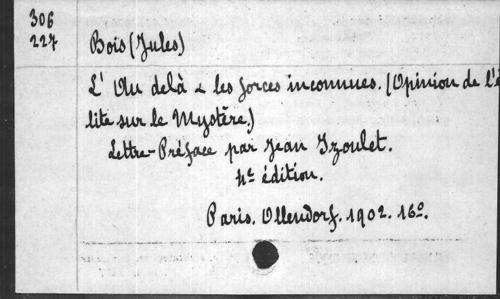 306
227
Bois (Jules)
L'Au delà & les forces inconnues. (Opinion de l'é
lite sur le Mystère.)
Lettre-Préface par Jean Izoulet.
4e édition.
Paris. Ollendorf. 1902. 16o.